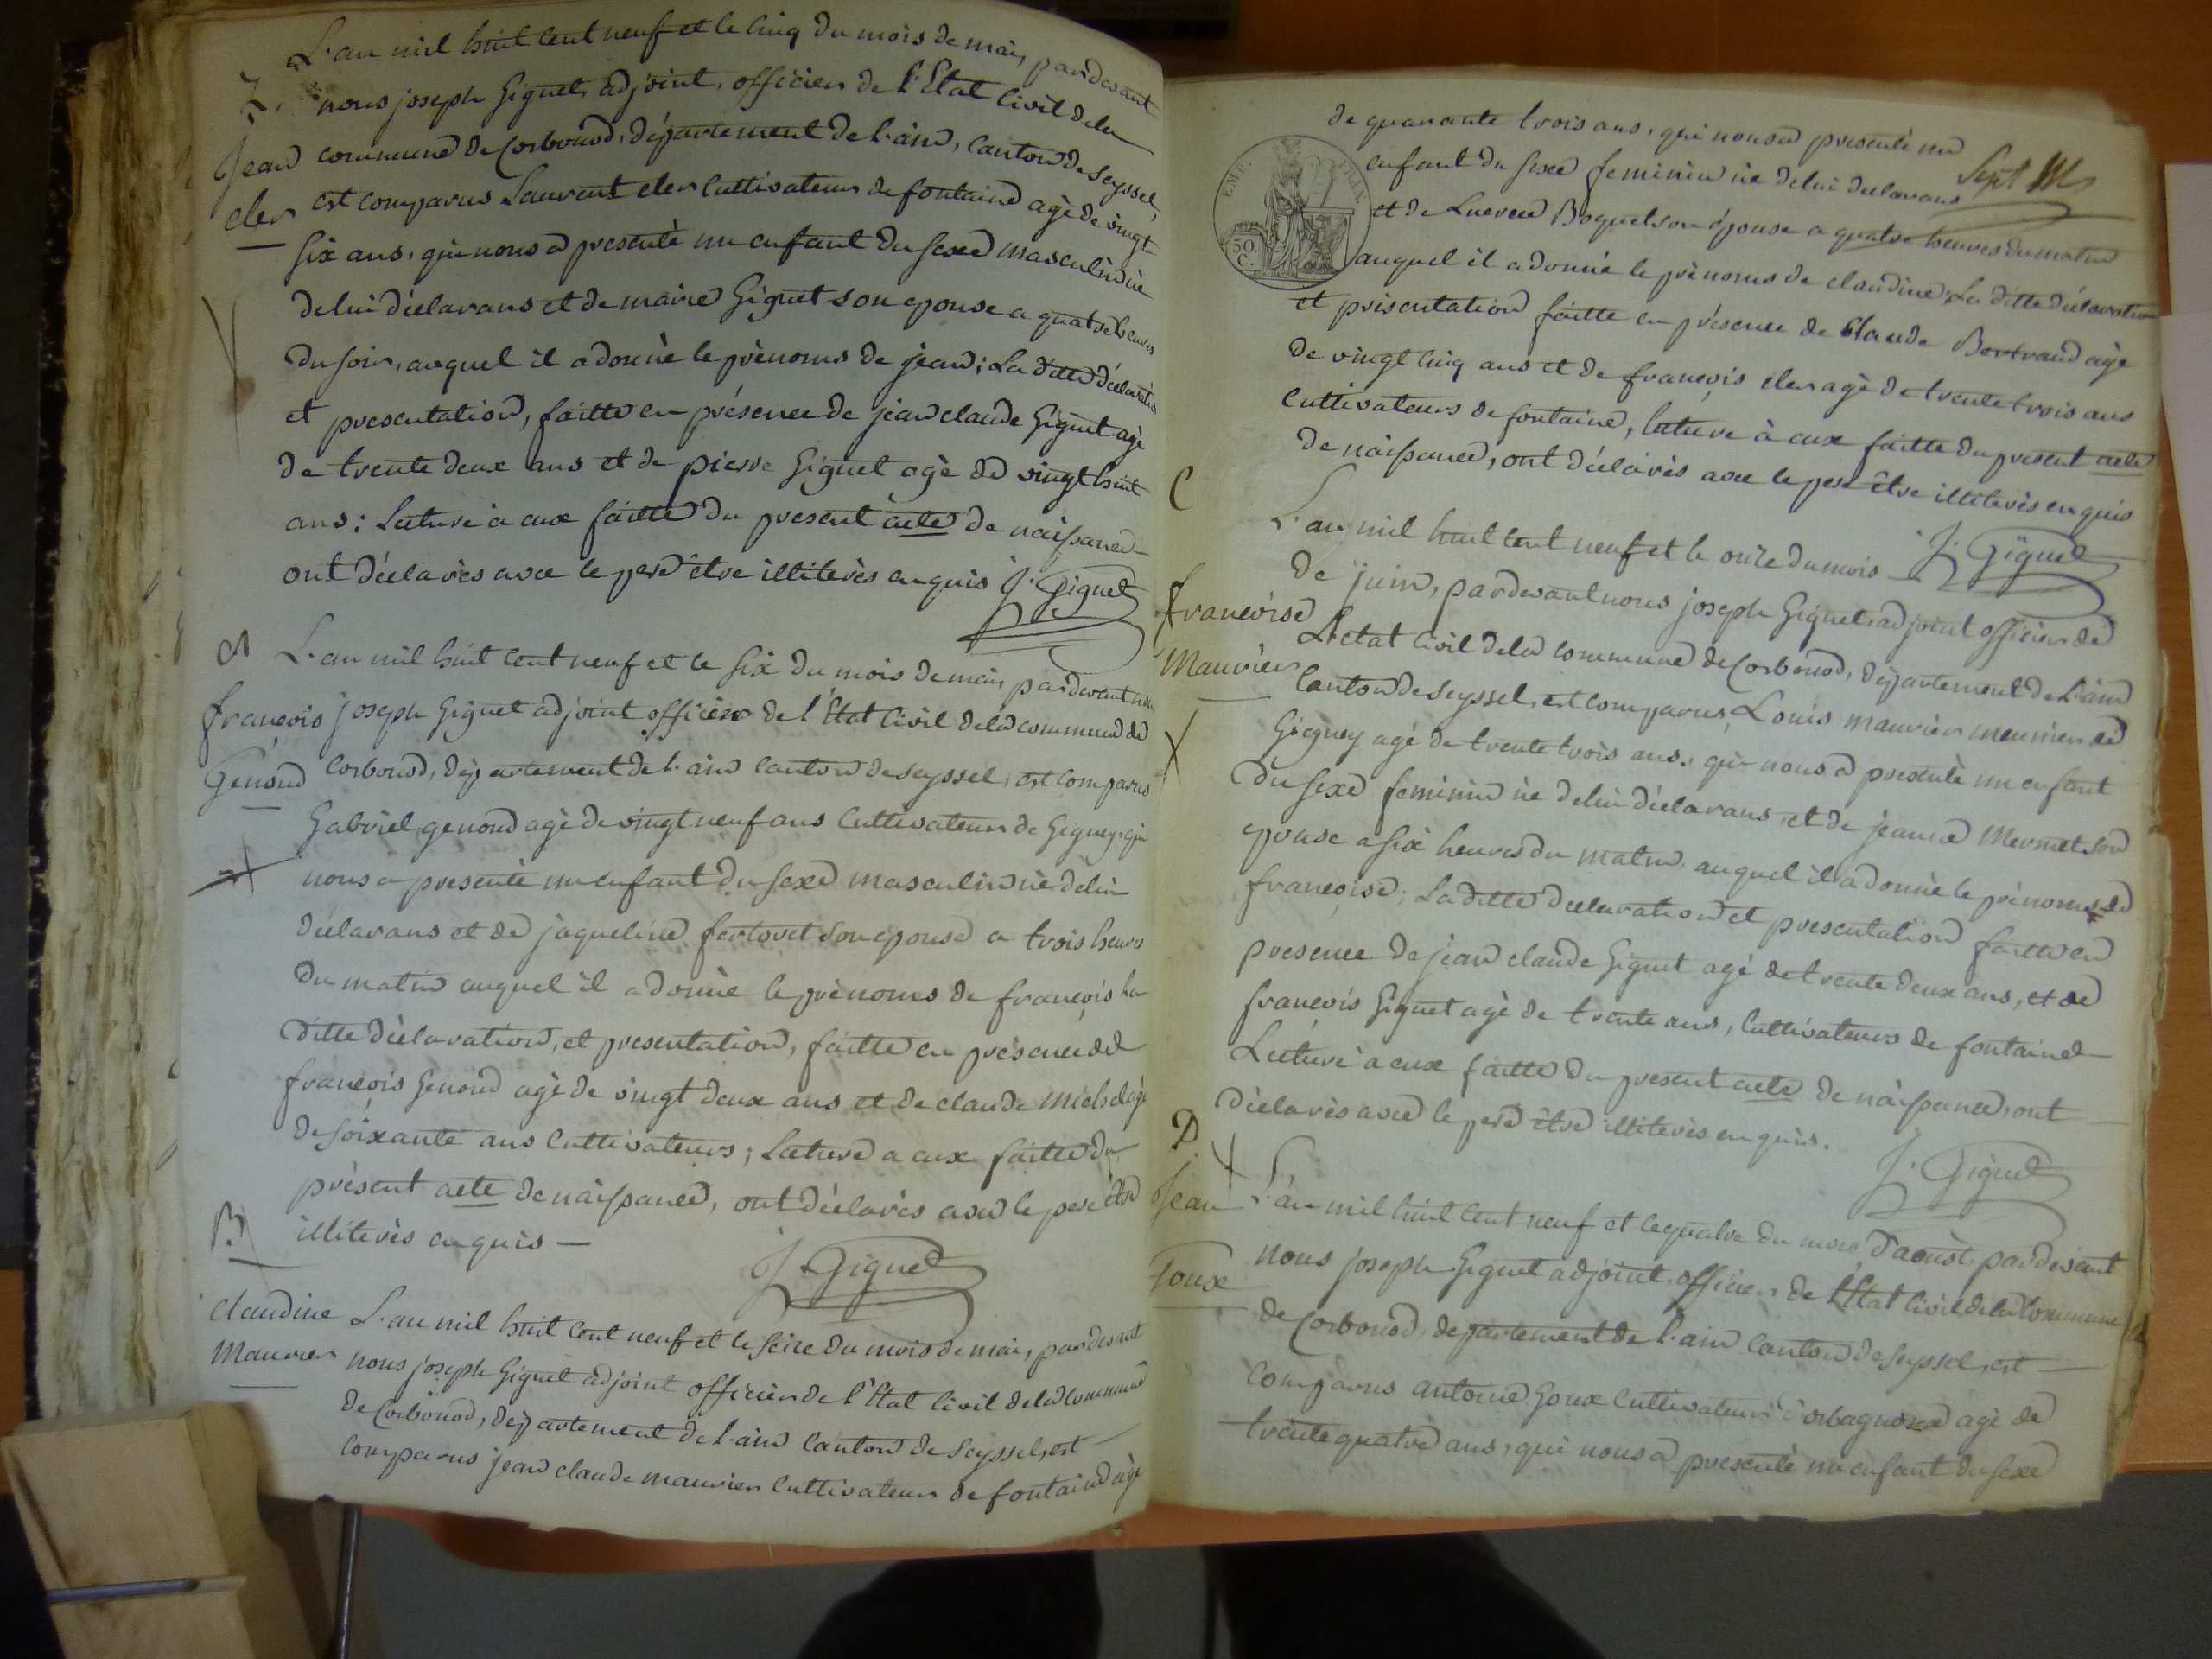 L'an mil huit cent neuf et le cinq du mois de mai, pardevant
Z.
nous joseph Giguet, adjoint, officier de l'Etat Civil de la
Jean
commune de Corbonod, département de l'ain, Canton de Seyssel,
cler
est comparus Laurent cler Cultivateur de fontaine agè de vingt
six ans, qui nous a presentè un enfant du sexe masculin nè
de lui déclarans et de marie Giguet son epouse a quatre heures
du soir, auquel il a donnè le prènoms de jean; La ditte déclaration
et presentation, faitte en présence de jean claude Giguet agè
de trente deux ans et de pierre Giguet agè de vingt huit
ans; Lecture à eux faitte du present acte de naissance
ont déclarès avec le pere être illiterès enquis J. Giguet
A
L'an mil huit cent neuf et le six du mois de mai, pardevant nous
françois
joseph Giguet adjoint officier de l'Etat Civil de la commune de
Genoud
Corbonod, département de l'ain Canton de Seyssel, est comparus
Gabriel genoud agè de vingt neuf ans Cultivateur de Gigney, qui
nous a presentè un enfant du sexe masculin nè de lui
déclarans et de jaqueline fertoret son epouse a trois heures
du matin auquel il a donnè le prènoms de françois La
ditte déclaration, et presentation, faitte en présence de
françois Genoud agè de vingt deux ans et de claude michel agè
de soixante ans Cultivateurs; Lecture a eux faitte du
présent acte de naissance, ont déclarès avec le pere être
B
illiterès enquis —
J. Giguet
claudine
L'an mil huit cent neuf et le seize du mois de mai, pardevant
Maurier
nous joseph Giguet adjoint officier de l'Etat Civil de la commune
de Corbonod, département de l'ain Canton de Seyssel, est
comparus jean claude maurier Cultivateur de fontaine agè
de quarante trois ans, qui nous a presentè un
Sept
EMP. FRAN.
50 C.
enfant du sexe feminin nè de lui declarans
et de Lucrece Boquet son épouse a quatre heures du matin
auquel il a donnè le prènoms de claudine; La ditte déclaration
et presentation faitte en présence de Claude Bertrand agè
de vingt cinq ans et de françois cler agè de trente trois ans
Cultivateurs de fontaine, lecture à eux faitte du present acte
de naissance, ont déclarès avec le pere être illiterès enquis
C
J. Giguet
L'an mil huit cent neuf et le onze du mois
françoise
de juin, pardevant nous joseph Giguet, adjoint officier de
Maurier
L'etat Civil de la commune de Corbonod, département de l'ain
Canton de Seyssel, est comparus, Louis maurier meunier de
Gigney agé de trente trois ans, qui nous a presentè un enfant
du sexe feminin nè de lui déclarans, et de jeanne Mermet son
epouse a six heures du matin, auquel il a donnè le prènoms de
françoise; La ditte declaration et presentation faitte en
presence de jean claude Giguet agé de trente deux ans, et de
françois Giguet agè de trente ans, Cultivateurs de fontaine
Lecture à eux faitte du present acte de naissance, ont
déclarès avec le pere être illiterès enquis.
J. Giguet
D.
Jean
L'an mil huit cent neuf et le quatre du mois d'aoust pardevant
Goux
nous joseph Giguet adjoint, officier de L'Etat Civil de la Commune
de Corbonod, departement de l'ain Canton de Seyssel, est
comparus antoine Goux Cultivateur d'orbagnoux agè de
trente quatre ans, qui nous a presentè un enfant du sexe